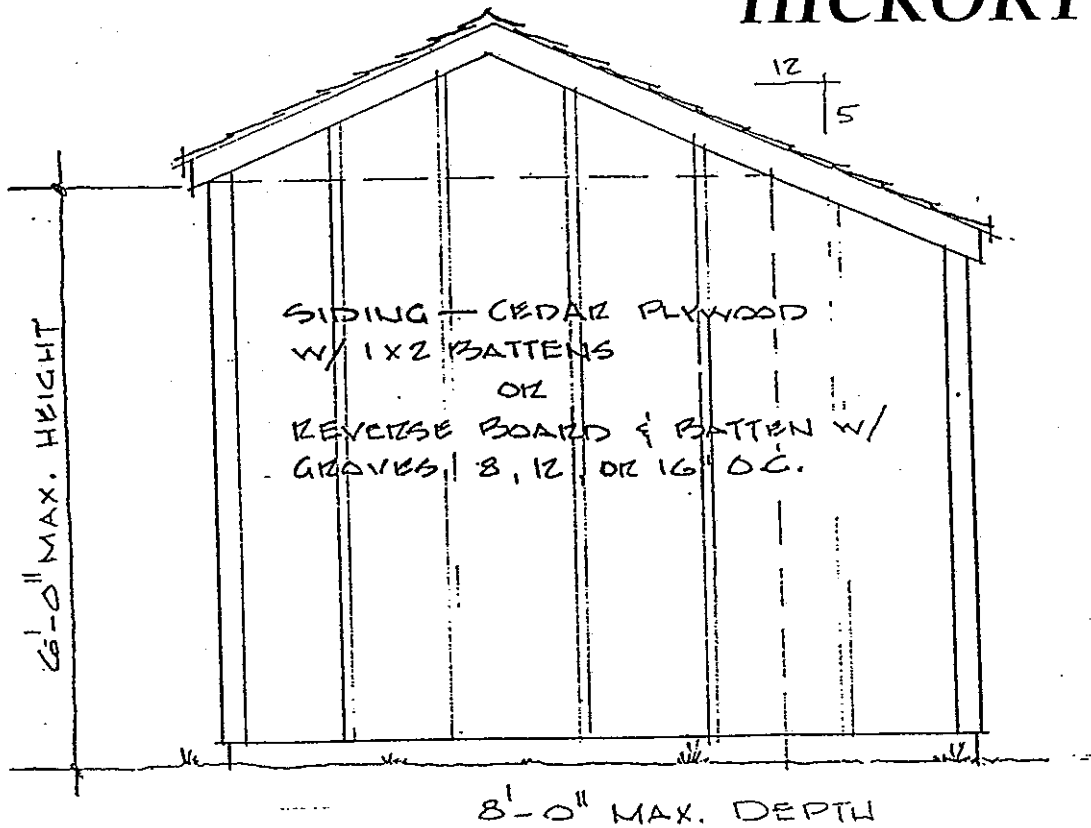 HICKORY
12
5
SIDING — CEDAR PLYWOOD
W/ 1X2 BATTENS
OR
REVERSE BOARD & BATTEN W/
GROVES, 8, 12, OR 16" O.C.
6'-0" MAX. HEIGHT
8'-0" MAX. DEPTH